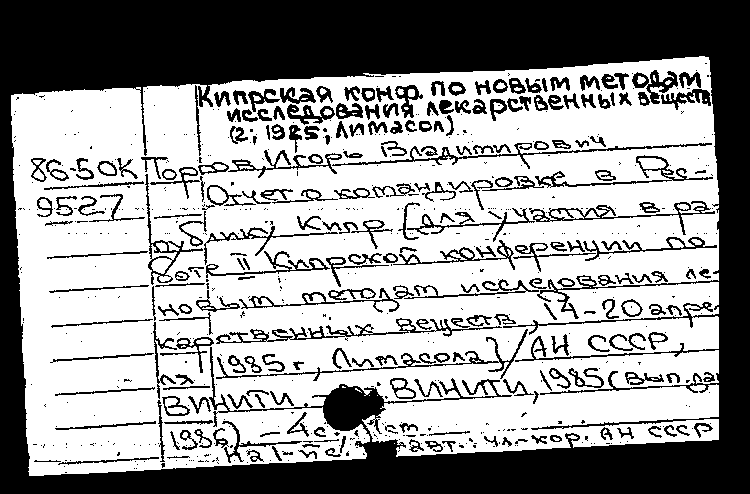 Кипрская конф. по новым методам
исследования лекарственных веществ
(2; 1985; Лимасол).
86-50К Торгов, Игорь Владимирович.
9527 Отчет о командировке в Рес-
публику Кипр [для участия в ра-
боте II Кипрской конференции по
новым методам исследования ле-
карственных веществ, 14-20 апре-
ля 1985 г., Лимасола] / АН СССР,
ВИНИТИ. ВИНИТИ, 1985 (вып. дан.
1986). - 4 с.
На 1-й с. авт.: чл.-кор. АН СССР